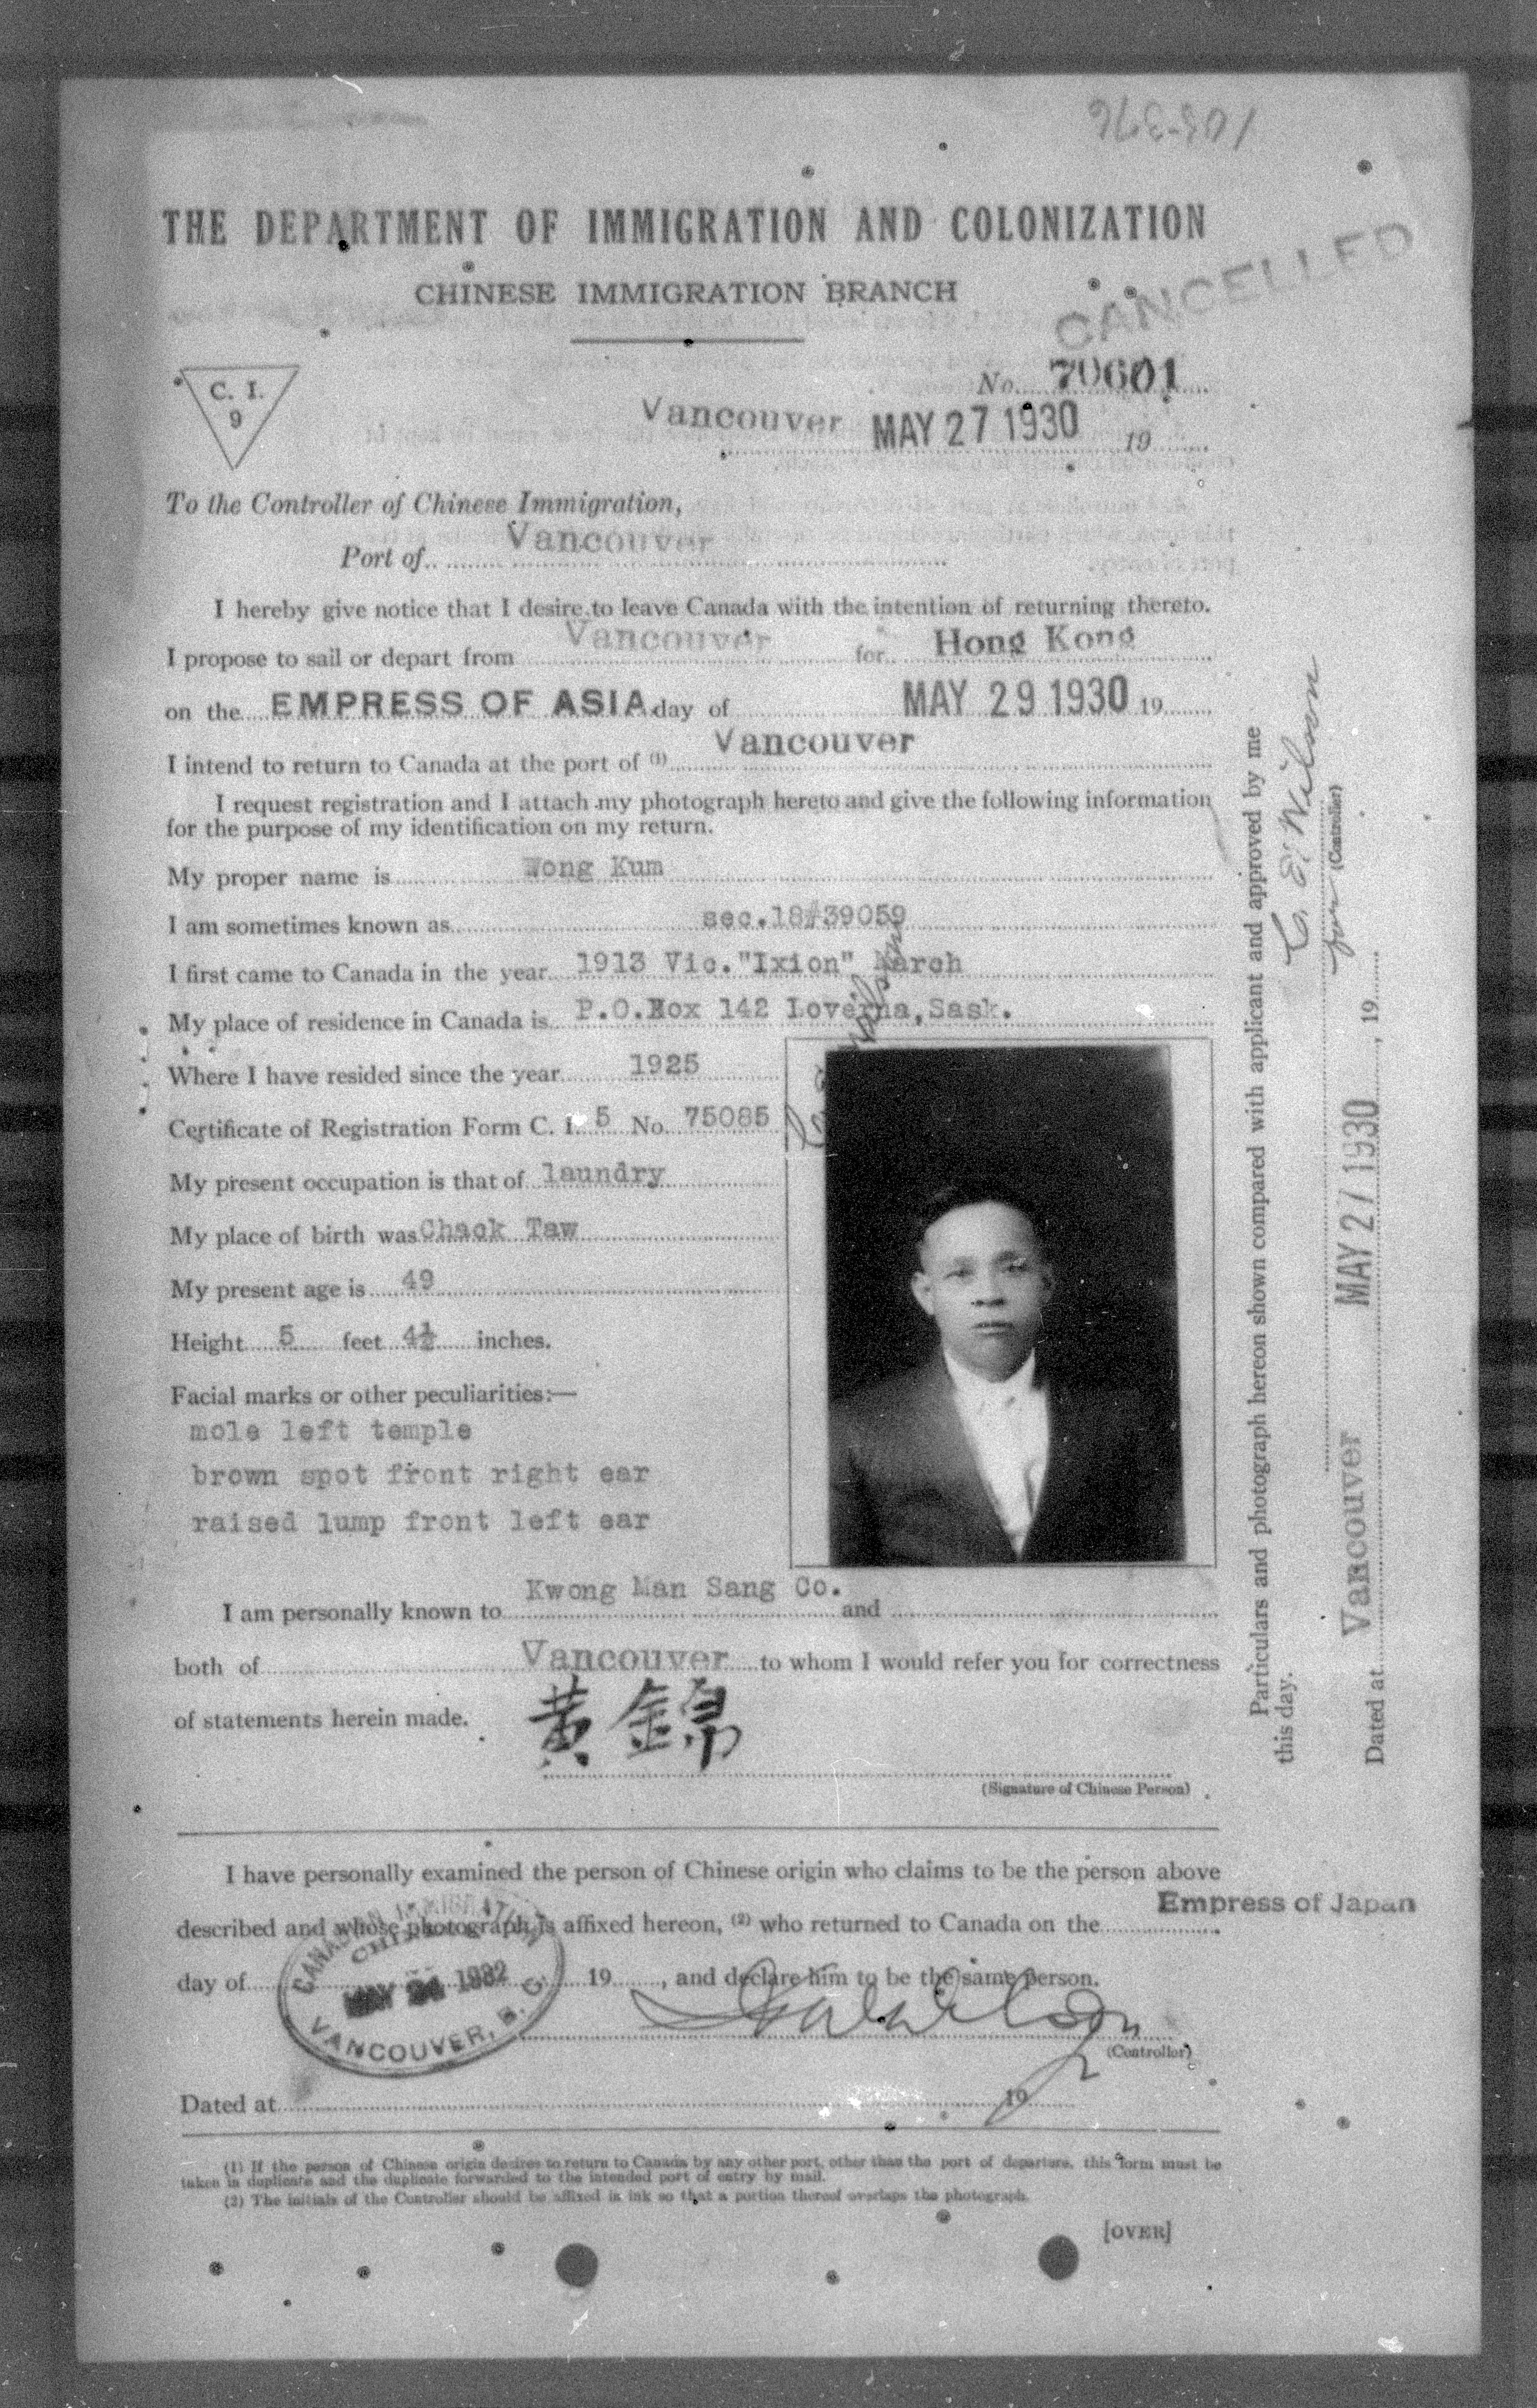 105-376
THE DEPARTMENT OF IMMIGRATION AND COLONIZATION
CHINESE IMMIGRATION BRANCH
CANCELLED
C. I.
9
No. 70601
Vancouver MAY 27 1930 19
To the Controller of Chinese Immigration,
Port of Vancouver
I hereby give notice that I desire to leave Canada with the intention of returning thereto.
I propose to sail or depart from Vancouver for Hong Kong
on the EMPRESS OF ASIA day of MAY 29 1930 19
I intend to return to Canada at the port of (1) Vancouver
I request registration and I attach my photograph hereto and give the following information
for the purpose of my identification on my return.
My proper name is Wong Kum
I am sometimes known as sec.18#39059
I first came to Canada in the year 1913 Vic."Ixion" March
My place of residence in Canada is P.O.Box 142 Loverna,Sask.
Where I have resided since the year 1925
Certificate of Registration Form C. I. 5 No. 75085
My present occupation is that of laundry
My place of birth was Chack Taw
My present age is 49
Height 5 feet 4½ inches.
Facial marks or other peculiarities:—
mole left temple
brown spot front right ear
raised lump front left ear
I am personally known to Kwong Man Sang Co. and
both of Vancouver to whom I would refer you for correctness
of statements herein made.
黄錦
(Signature of Chinese Person)
Particulars and photograph hereon shown compared with applicant and approved by me
this day.
C. E. Wilson
for (Controller)
Dated at Vancouver MAY 27 1930, 19
I have personally examined the person of Chinese origin who claims to be the person above
described and whose photograph is affixed hereon, (2) who returned to Canada on the Empress of Japan
day of 19, and declare him to be the same person.
CANADIAN IMMIGRATION
CHINESE
MAY 24 1932
VANCOUVER, B. C.
(Controller)
Dated at 19
(1) If the person of Chinese origin desires to return to Canada by any other port, other than the port of departure, this form must be
taken in duplicate and the duplicate forwarded to the intended port of entry by mail.
(2) The initials of the Controller should be affixed in ink so that a portion thereof overlaps the photograph.
[OVER]